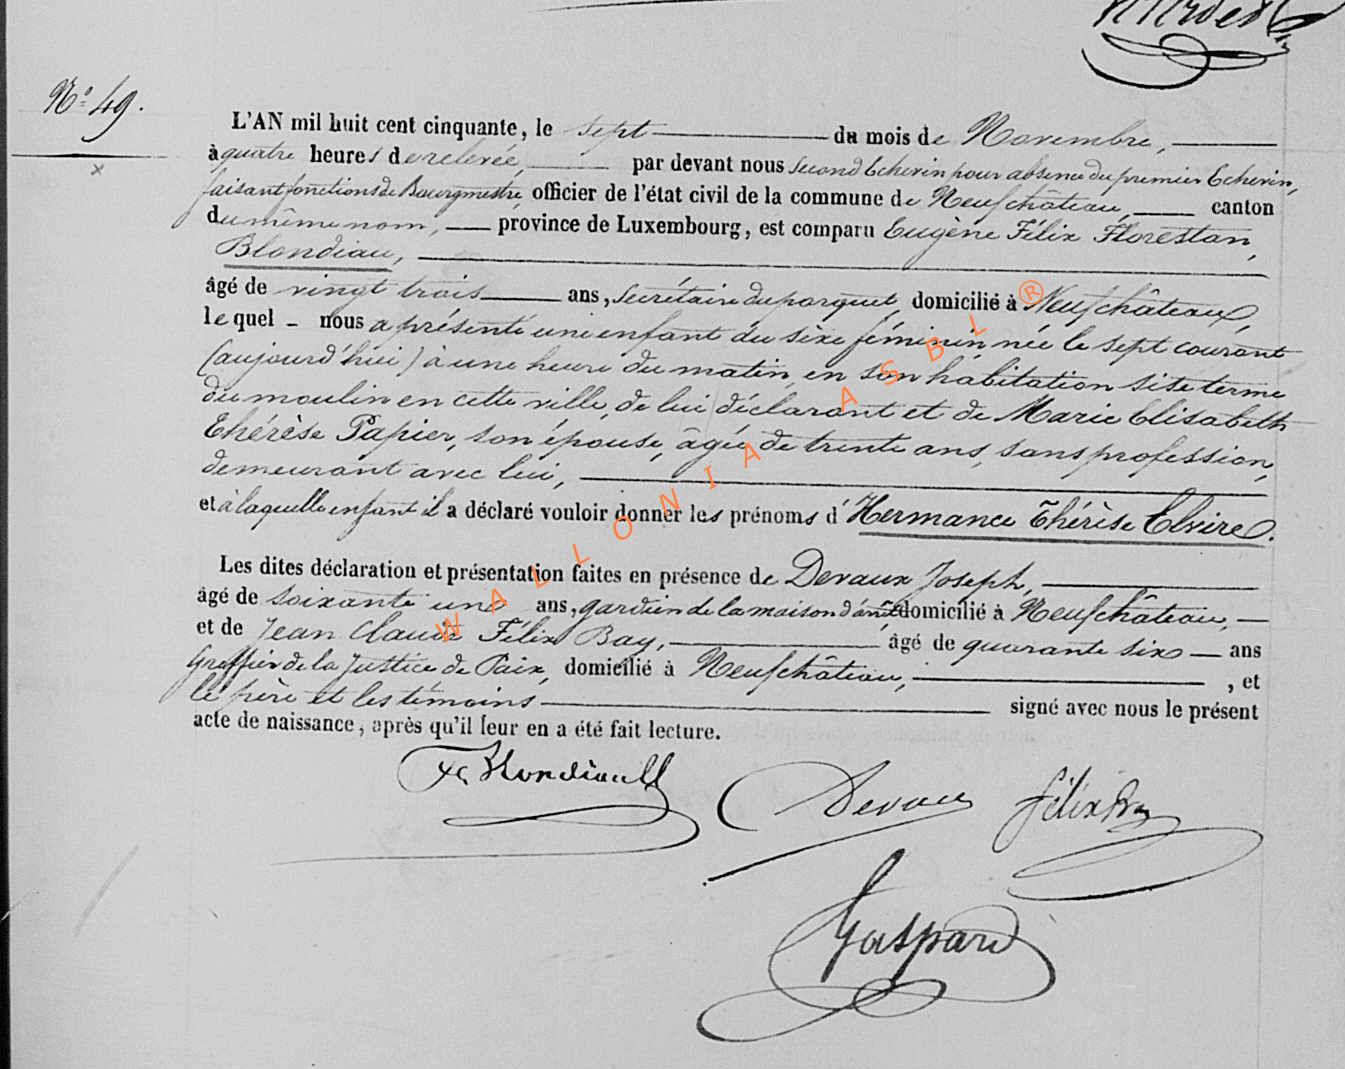 N° 49.
L'AN mil huit cent cinquante, le sept du mois de Novembre,
à quatre heures de relevée, par devant nous second Echevin pour absence du premier Echevin,
faisant fonctions de Bourgmestre officier de l'état civil de la commune de Neufchâteau, canton
du même nom, province de Luxembourg, est comparu Eugène Félix Florestan,
Blondiau,
âgé de vingt trois ans, secrétaire du parquet, domicilié à Neufchâteau,
lequel nous a présenté une enfant du sèxe féminin, née le sept courant
(aujourd'hui) à une heure du matin, en son habitation site terme
du moulin en cette ville, de lui déclarant et de Marie Elisabeth
Thérèse Papier, son épouse, âgée de trente ans, sans profession,
demeurant avec lui,
et à laquelle enfant il a déclaré vouloir donner les prénoms d'Hermance Thérèse Elvire.
Les dites déclaration et présentation faites en présence de Devaux Joseph,
âgé de soixante un ans, gardien de la maison d'arrêt domicilié à Neufchâteau,
et de Jean Claude Félix Bay, âgé de quarante six ans
Greffier de la Justice de Paix, domicilié à Neufchâteau, , et
le père et les témoins signé avec nous le présent
acte de naissance, après qu'il leur en a été fait lecture.
Blondiau Devaux Félix Bay
Gaspard
WALLONIA ASBL ®